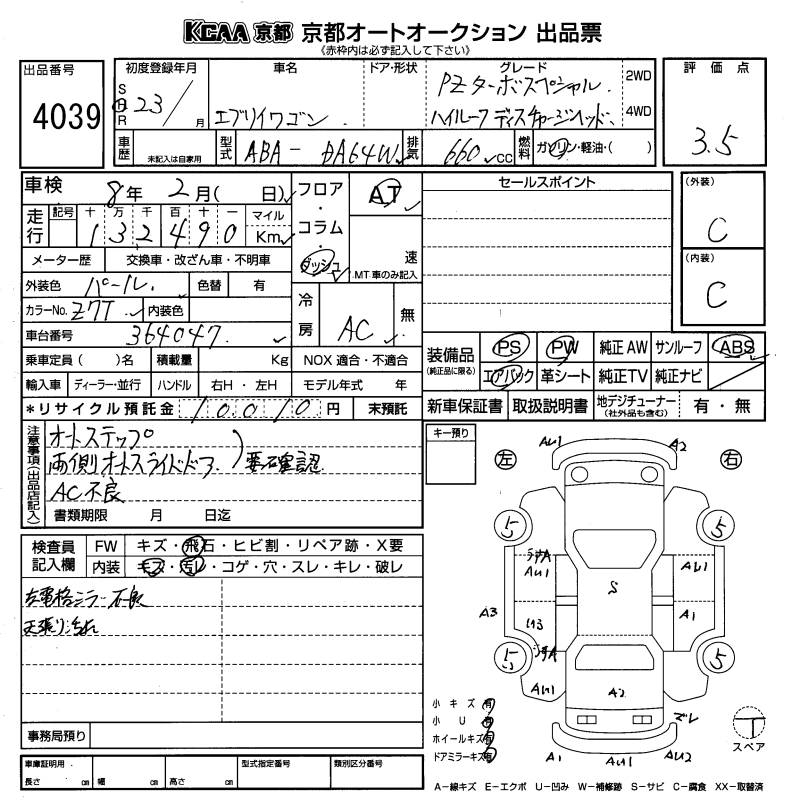 KCAA 京都 京都オートオークション 出品票
《赤枠内は必ず記入して下さい》
出品番号
4039
初度登録年月
S
H
R
23/
月
車名
エブリイワゴン
ドア・形状
グレード
PZターボスペシャル
ハイルーフ ディスチャージヘッド
2WD
4WD
評価点
3.5
車歴
未記入は自家用
型式
ABA-DA64W
排気
660 cc
燃料
ガソリン・軽油・( )
車検
8年 2月( 日)
走行
記号 十 万 千 百 十 一 マイル
1 3 2 4 9 0 Km
メーター歴 交換車・改ざん車・不明車
外装色 パール 色替 有
カラーNo. Z7T 内装色
車台番号 364047
乗車定員( )名 積載量 Kg NOX 適合・不適合
輸入車 ディーラー・並行 ハンドル 右H・左H モデル年式 年
*リサイクル預託金 10,010 円 未預託
フロア・コラム・ダッシュ
AT
速
MT車のみ記入
冷房
AC
無
セールスポイント
(外装)
C
(内装)
C
装備品
(純正品に限る)
PS PW 純正AW サンルーフ ABS
エアバック 革シート 純正TV 純正ナビ
新車保証書 取扱説明書 地デジチューナー
(社外品も含む)
有・無
注意事項(出品店記入)
オートステップ
両側オートスライドドア
要確認
AC不良
書類期限 月 日迄
検査員記入欄
FW キズ・飛石・ヒビ割・リペア跡・X要
内装 キズ・汚レ・コゲ・穴・スレ・キレ・破レ
左電格ミラー不良
天張り汚れ
事務局預り
車庫証明用
長さ cm 幅 cm 高さ cm
型式指定番号
類別区分番号
キー預り
左
右
AU1
A2
5
5
AU1
AU1
S
A3
A1
U3
5
5
AU1
A2
ズレ
A1
AU1
AU2
小キズ 有
小U 有
ホイールキズ 有
ドアミラーキズ 有
T
スペア
A-線キズ E-エクボ U-凹み W-補修跡 S-サビ C-腐食 XX-取替済